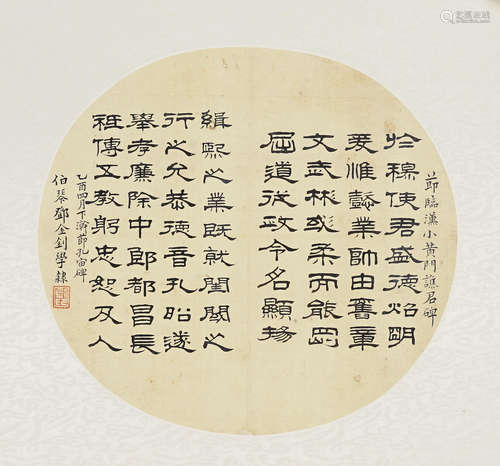 節臨漢小黃門譙君碑
於穆使君盛德炤明
爰惟懿業帥由舊章
文武彬彧柔而能罡
屈道從政令名顯揚
緝熙之業既就閨閫之
行之允恭德音孔昭遂
舉孝廉除中郎都昌長
祖傳五教躬忠恕及人
乙酉四月下澣節孔宙碑
伯琴鄧金釗學隸